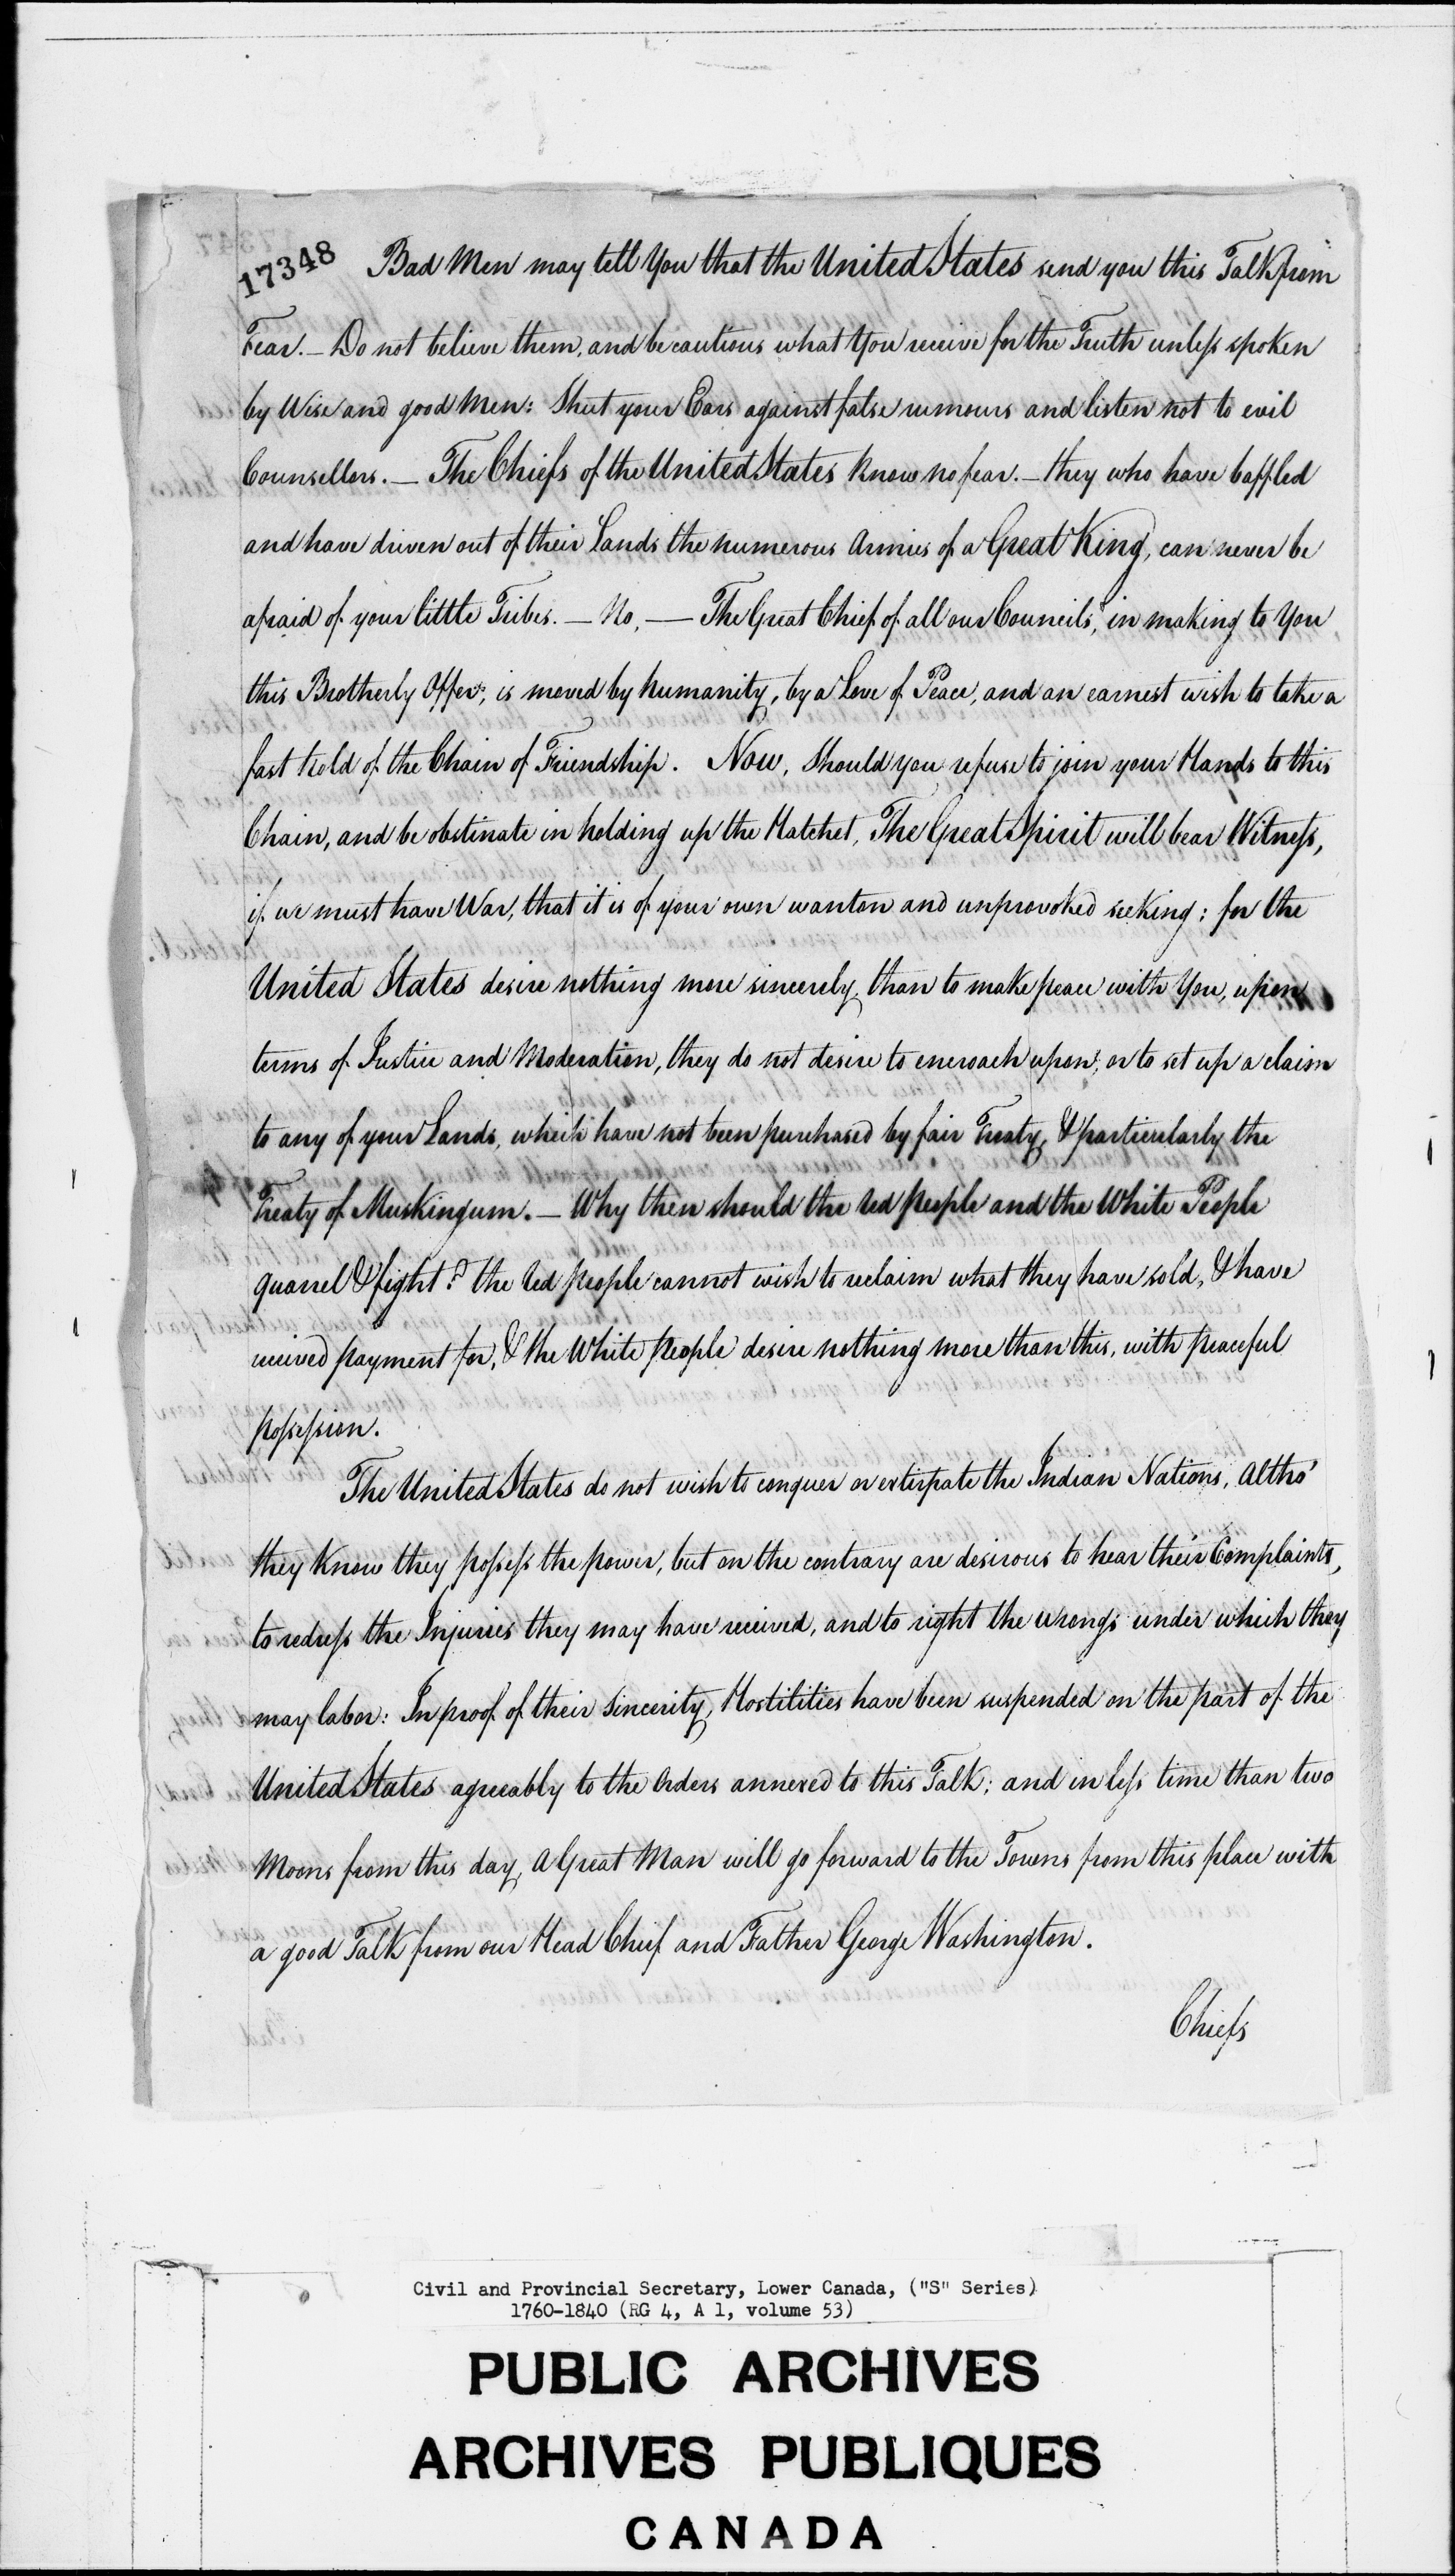 17348 Bad Men may tell You that the United States send you this Talk from
Fear. — Do not believe them, and be cautious what You receive for the Truth unless spoken
by Wise and good Men: Shut your Ears against false rumours and listen not to evil
Counsellors. — The Chiefs of the United States know no fear. — they who have baffled
and have driven out of their Lands the numerous Armies of a Great King, can never be
afraid of your little Tribes. — No, — The Great Chief of all our Councils, in making to You
this Brotherly Offer, is moved by humanity, by a Love of Peace, and an earnest wish to take a
fast hold of the Chain of Friendship. Now, should you refuse to join your Hands to this
Chain, and be obstinate in holding up the Hatchet, The Great Spirit will bear Witness,
if we must have War, that it is of your own wanton and unprovoked seeking; for the
United States desire nothing more sincerely, than to make peace with You, upon
terms of Justice and Moderation, they do not desire to encroach upon, or to set up a claim
to any of your Lands, which have not been purchased by fair Treaty, & particularly the
Treaty of Muskingum. — Why then should the red people and the White People
quarrel & fight? the red people cannot wish to reclaim what they have sold, & have
received payment for, & the White people desire nothing more than this, with peaceful
possession.
The United States do not wish to conquer or extirpate the Indian Nations, Altho'
they know they possess the power, but on the contrary are desirous to hear their Complaints,
to redress the Injuries they may have received, and to right the wrongs under which they
may labor: In proof of their Sincerity, Hostilities have been suspended on the part of the
United States agreeably to the Orders annexed to this Talk; and in less time than two
Moons from this day, A Great Man will go forward to the Towns from this place with
a good Talk from our Head Chief and Father George Washington.
Chiefs
Civil and Provincial Secretary, Lower Canada, ("S" Series)
1760-1840 (RG 4, A 1, volume 53)
PUBLIC ARCHIVES
ARCHIVES PUBLIQUES
CANADA